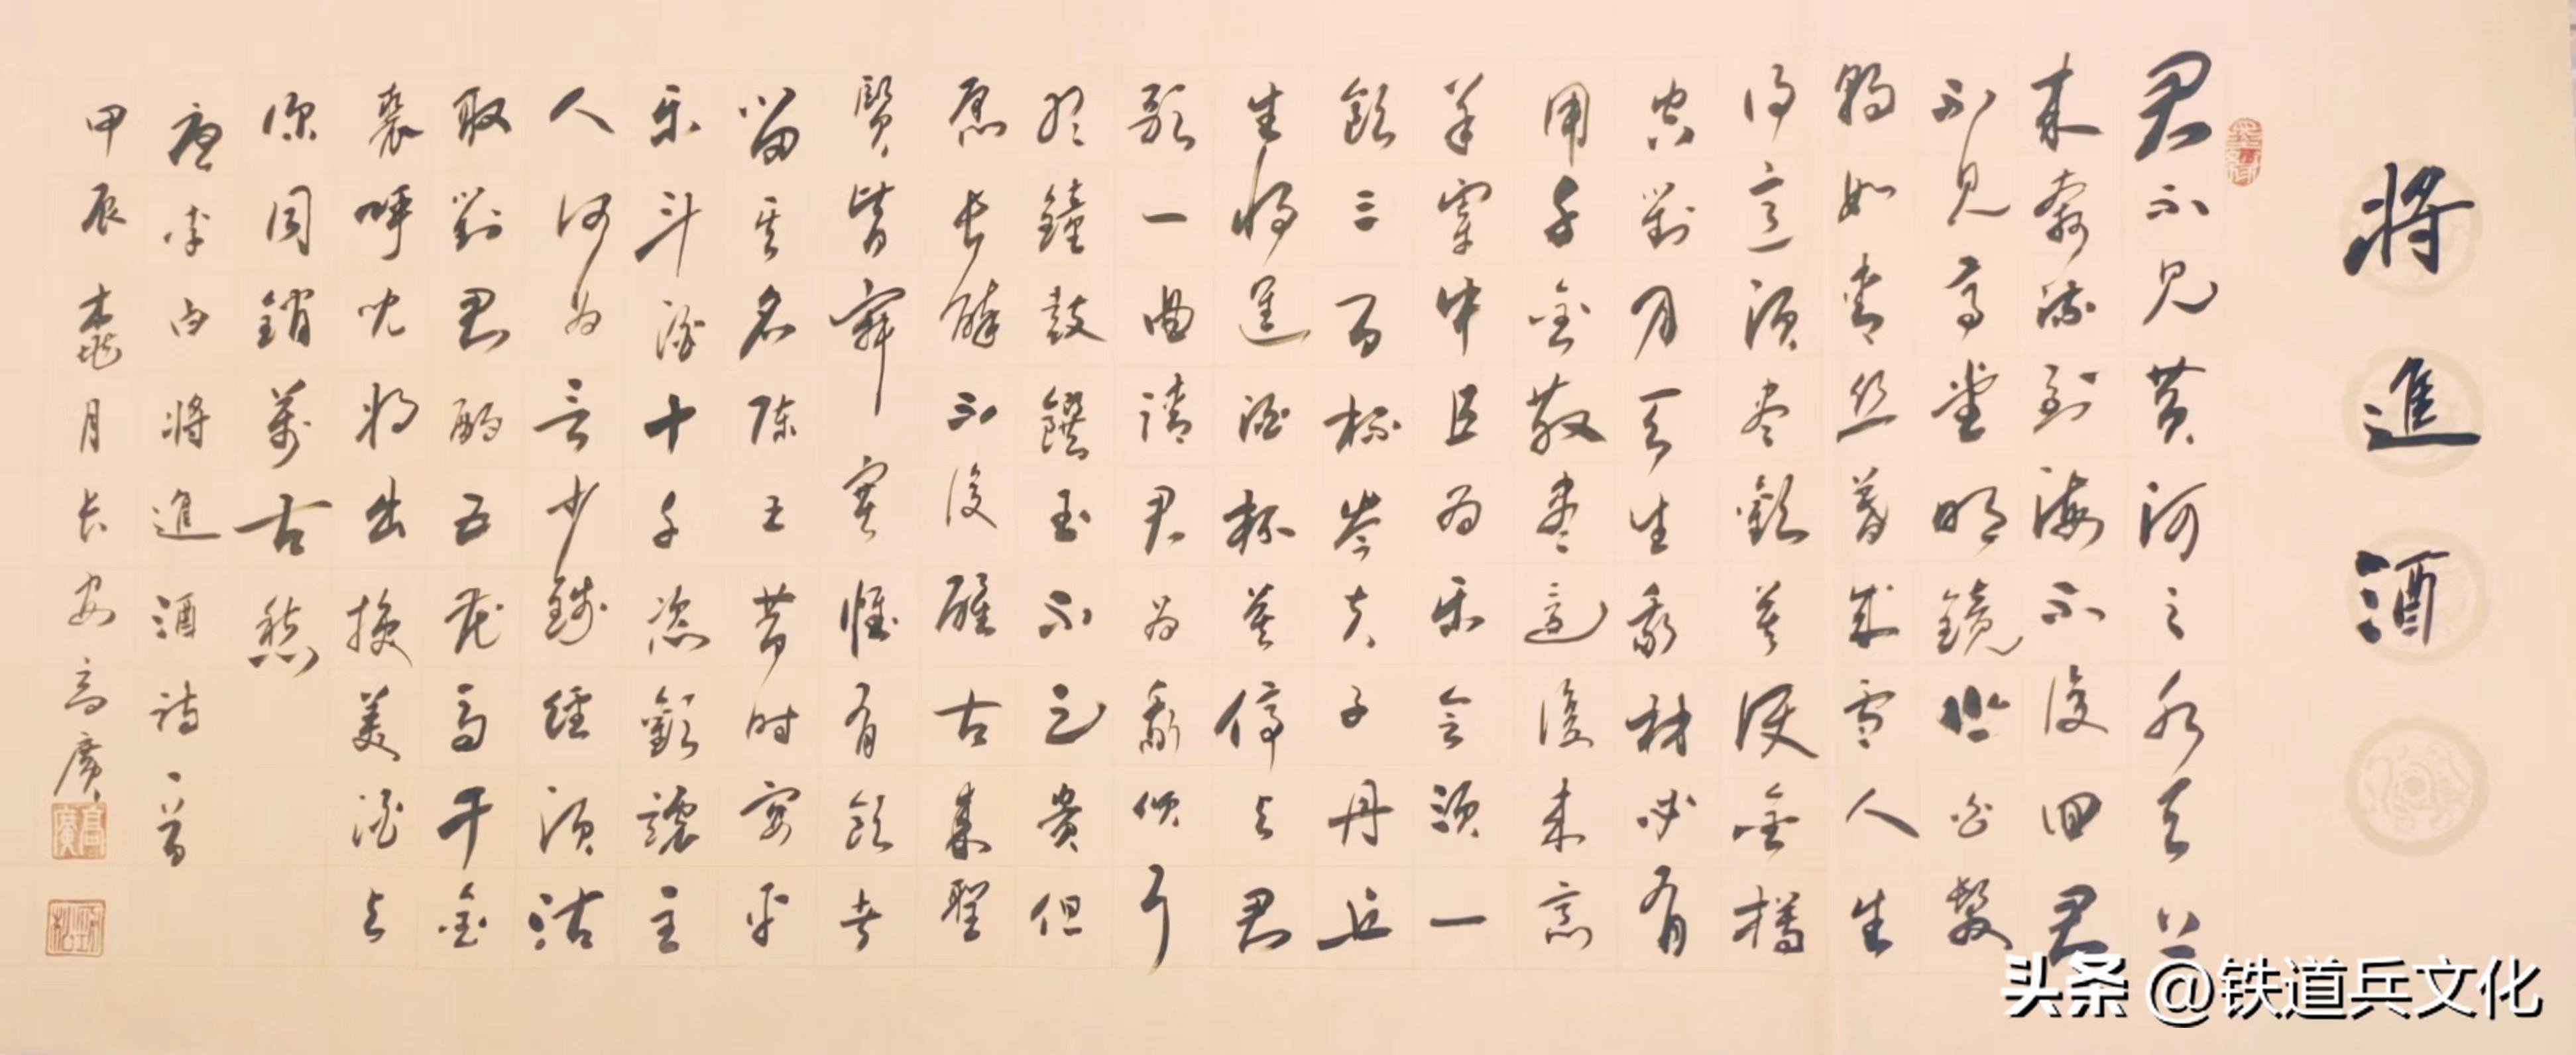 將進酒
君不见黄河之水天上
来奔流到海不復回君
不见高堂明鏡悲白髮
朝如青丝暮成雪人生
得意须尽歡莫使金樽
空對月天生我材必有
用千金散尽還復来烹
羊宰牛且为乐会须一
飲三百杯岑夫子丹丘
生将進酒杯莫停与君
歌一曲请君为我倾耳
听鐘鼓饌玉不足贵但
愿长醉不復醒古来聖
賢皆寂寞惟有飲者
留其名陈王昔时宴平
乐斗酒十千恣歡謔主
人何为言少錢经须沽
取對君酌五花马千金
裘呼兒将出换美酒与
你同銷萬古愁
唐李白將進酒诗一首
甲辰桃月长安高廣
高廣
头条 @铁道兵文化